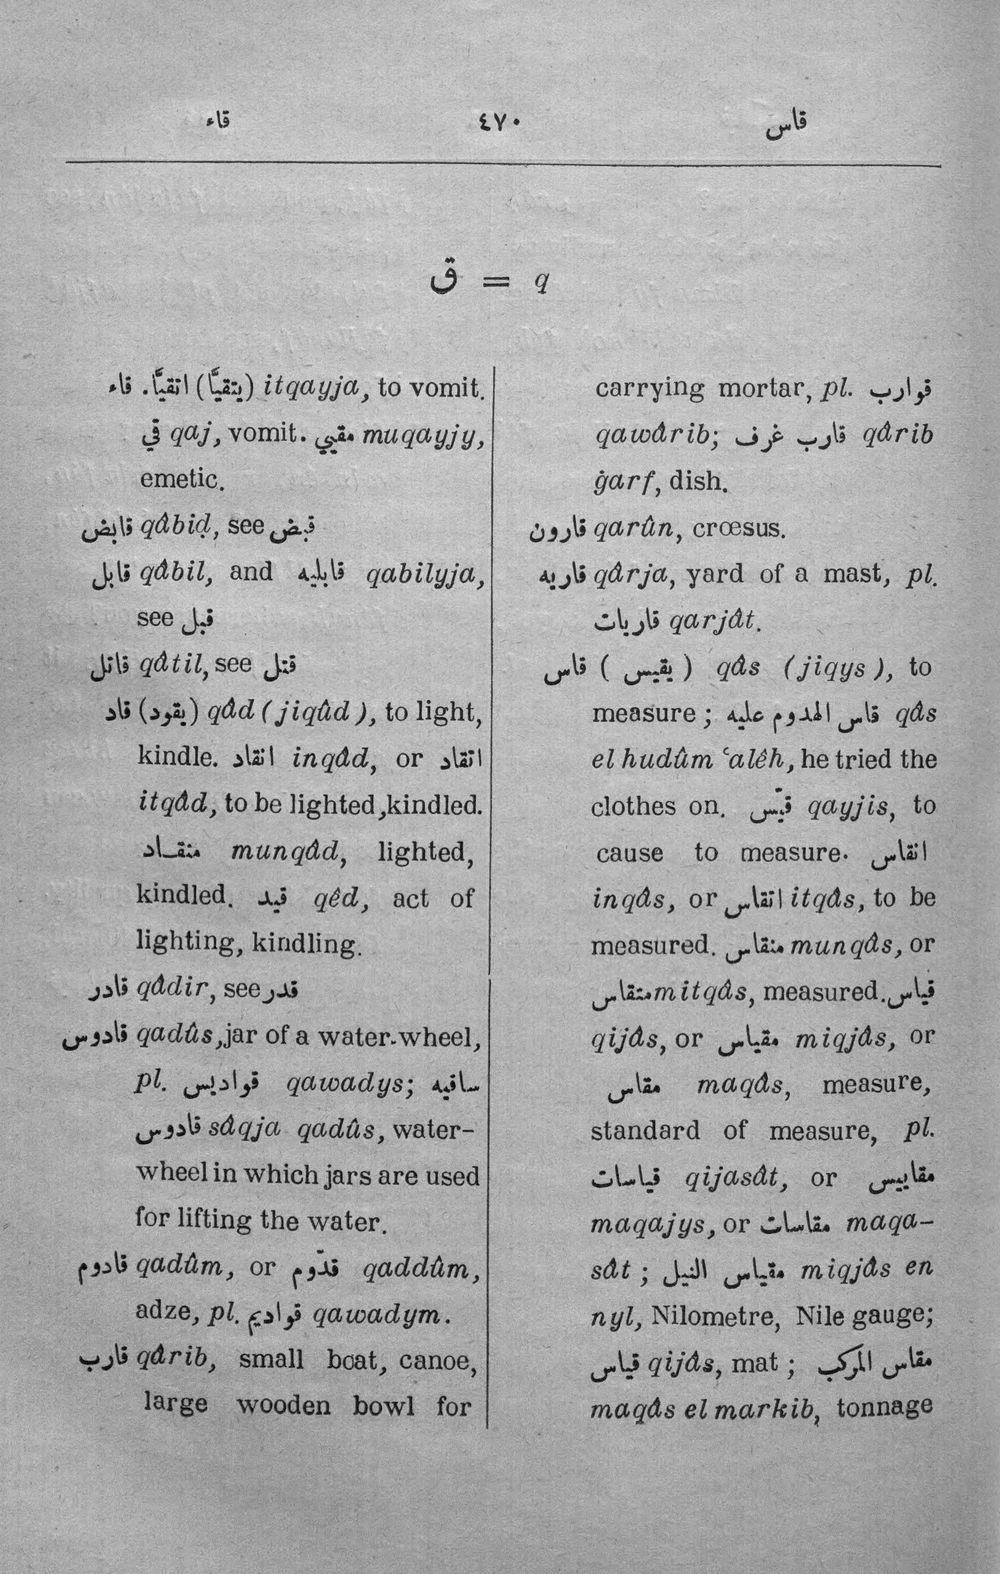 قاء ٤٧٠ قاس
ق = q
قاء .اتقيَّا (يتقيَّا) itqayja, to vomit.
قي qaj, vomit. مقيي muqayjy,
emetic.
قابض qâbiḍ, see قبض
قابل qâbil, and قابليه qabilyja,
see قبل
قاتل qâtil, see قتل
قاد (يقود) qâd (jiqûd), to light,
kindle. انقاد inqâd, or اتقاد
itqâd, to be lighted,kindled.
منقـاد munqâd, lighted,
kindled. قيد qêd, act of
lighting, kindling.
قادر qâdir, see قدر
قادوس qadûs,jar of a water-wheel,
pl. قواديس qawadys; ساقيه
قادوس sâqja qadûs, water-
wheel in which jars are used
for lifting the water.
قادوم qadûm, or قدّوم qaddûm,
adze, pl. قواديم qawadym.
قارب qârib, small boat, canoe,
large wooden bowl for
carrying mortar, pl. قوارب
qawârib; قارب غرف qârib
ġarf, dish.
قارون qarûn, crœsus.
قاريه qârja, yard of a mast, pl.
قاريات qarjât.
قاس ( يقيس ) qâs (jiqys), to
measure; قاس الهدوم عليه qâs
el hudûm ʿalêh, he tried the
clothes on. قيّس qayjis, to
cause to measure. انقاس
inqâs, or اتقاس itqâs, to be
measured. منقاس munqâs, or
متقاس mitqâs, measured. قياس
qijâs, or مقياس miqjâs, or
مقاس maqâs, measure,
standard of measure, pl.
قياسات qijasât, or مقاييس
maqajys, or مقاسات maqa-
sât; مقياس النيل miqjâs en
nyl, Nilometre, Nile gauge;
قياس qijâs, mat; مقاس المركب
maqâs el markib, tonnage